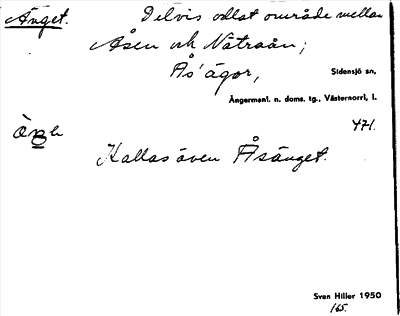 Änget. Delvis odlat område mellan
Åsen och Nätraån;
Ås' ägor,
Sidensjö sn,
Ångermanl. n. doms. tg., Västernorrl. l.
471.
Kallas även Åsänget.
Sven Hiller 1950
165.